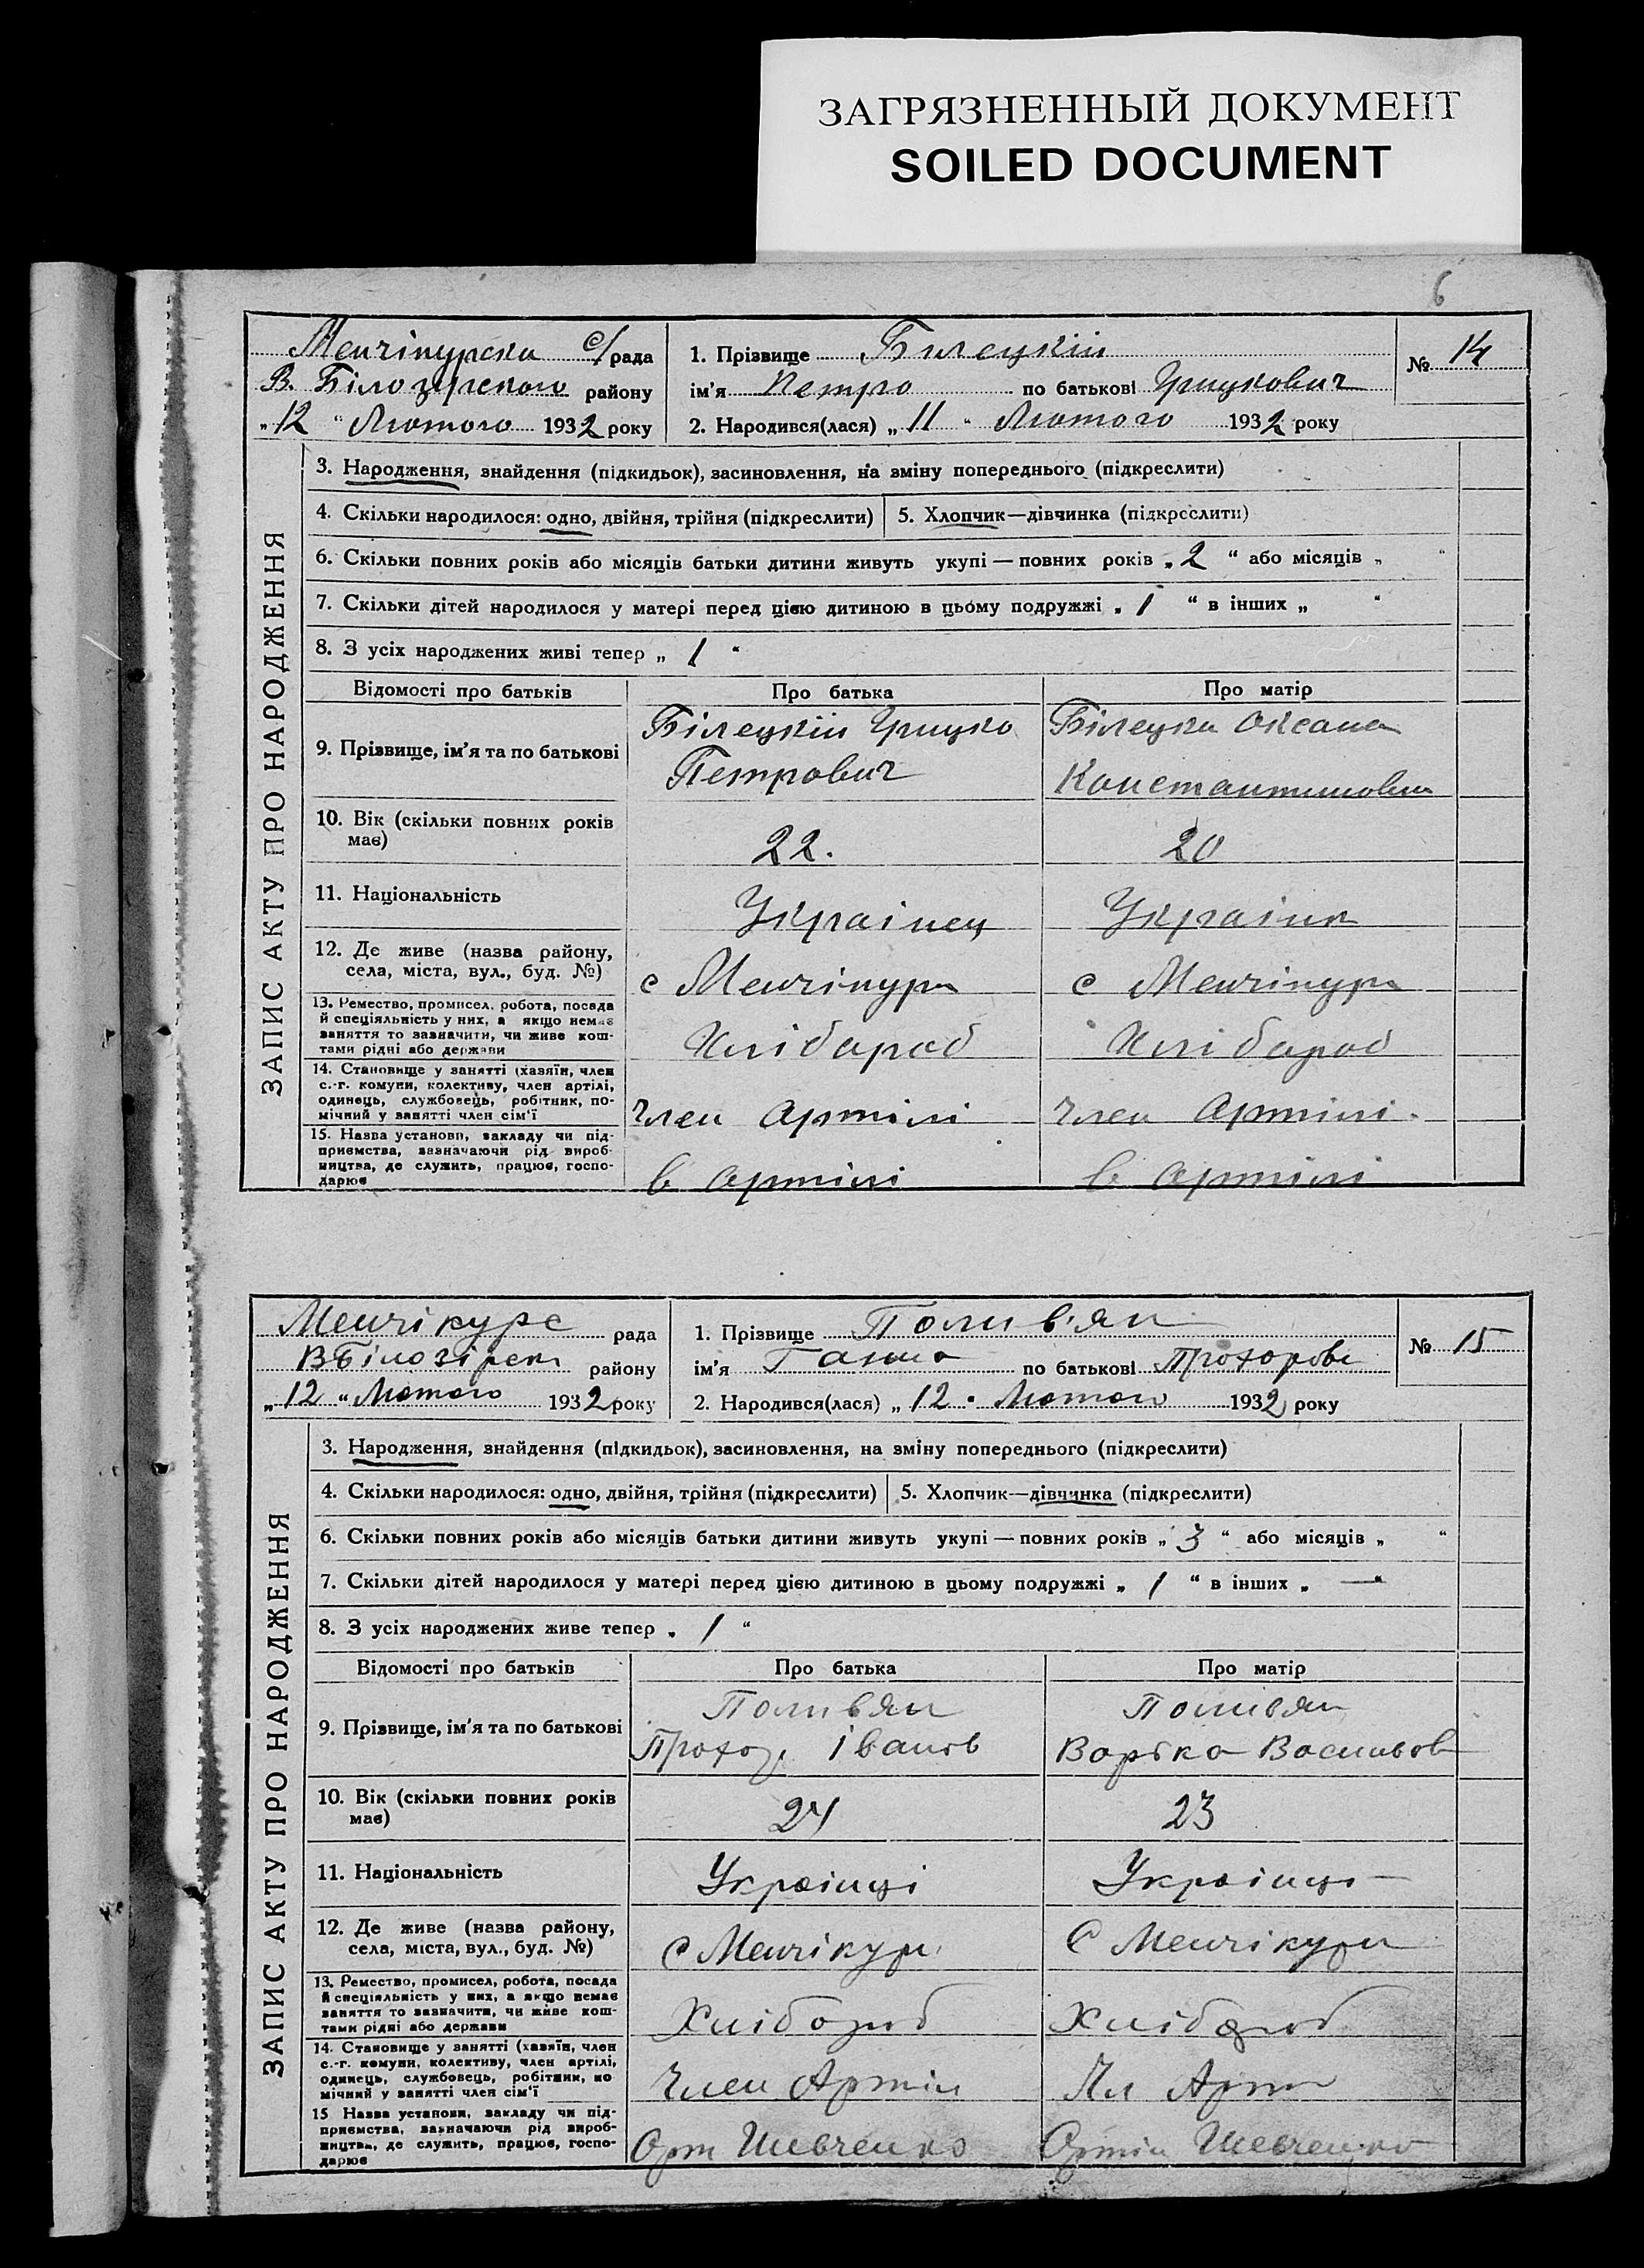 ЗАГРЯЗНЕННЫЙ ДОКУМЕНТ
SOILED DOCUMENT
6
Менчікурска с/рада
В. Білозірского району
„12“ Лютого 1932 року
1. Прізвище Білецкій
ім’я Петро по батькові Грицкович
2. Народився(лася) „11“ Лютого 1932 року
№ 14
ЗАПИС АКТУ ПРО НАРОДЖЕННЯ
3. Народження, знайдення (підкидьок), засиновлення, на зміну попереднього (підкреслити)
4. Скільки народилося: одно, двійня, трійня (підкреслити)
5. Хлопчик—дівчинка (підкреслити)
6. Скільки повних років або місяців батьки дитини живуть укупі — повних років „2“ або місяців „ “
7. Скільки дітей народилося у матері перед цією дитиною в цьому подружжі „1“ в інших „ “
8. З усіх народжених живі тепер „1“
Відомості про батьків Про батька Про матір
9. Прізвище, ім’я та по батькові
Білецкій Грицко
Петрович
Білецка Оксана
Константиновна
10. Вік (скільки повних років
має)
22. 20
11. Національність
Українец Українк
12. Де живе (назва району,
села, міста, вул., буд. №)
с Менчікури с Менчікури
13. Ремество, промисел, робота, посада
й спеціяльність у них, а якщо немає
заняття то зазначити, чи живе кош-
тами рідні або держави
Хлібароб Хлібароб
14. Становище у занятті (хазяїн, член
с.-г. комуни, колективу, член артілі,
одинець, службовець, робітник, по-
мічний у занятті член сім’ї
Член Артілі Член Артілі.
15. Назва установи, закладу чи під-
приємства, зазначаючи рід вироб-
ництва, де служить, працює, госпо-
дарює
в артілі в артілі
Менчікурс рада
ВБілозірск району
„12“ Лютого 1932 року
1. Прізвище Полив’ян
ім’я Ганна по батькові Прохоровн
2. Народився(лася) „12“ Лютого 1932 року
№ 15
ЗАПИС АКТУ ПРО НАРОДЖЕННЯ
3. Народження, знайдення (підкидьок), засиновлення, на зміну попереднього (підкреслити)
4. Скільки народилося: одно, двійня, трійня (підкреслити)
5. Хлопчик—дівчинка (підкреслити)
6. Скільки повних років або місяців батьки дитини живуть укупі — повних років „3“ або місяців „ “
7. Скільки дітей народилося у матері перед цією дитиною в цьому подружжі „1“ в інших „—“
8. З усіх народжених живе тепер „1“
Відомості про батьків Про батька Про матір
9. Прізвище, ім’я та по батькові
Поливян
Прохор Іванов
Поливян
Варька Васильов
10. Вік (скільки повних років
має)
24 23
11. Національність
Українці Українці
12. Де живе (назва району,
села, міста, вул., буд. №)
с Менчікури С Менчікури
13. Ремество, промисел, робота, посада
й спеціяльність у них, а якщо немає
заняття то зазначити, чи живе кош-
тами рідні або держави
Хлібороб Хлібороб
14. Становище у занятті (хазяїн, член
с.-г. комуни, колективу, член артілі,
одинець, службовець, робітник, по
мічний у занятті член сім’ї
Член Артіл Чл Арт
15 Назва установи, закладу чи під-
приємства, зазначаючи рід вироб-
ництва, де служить, працює, госпо-
дарює
Арт Шевченко Артіл Шевченко